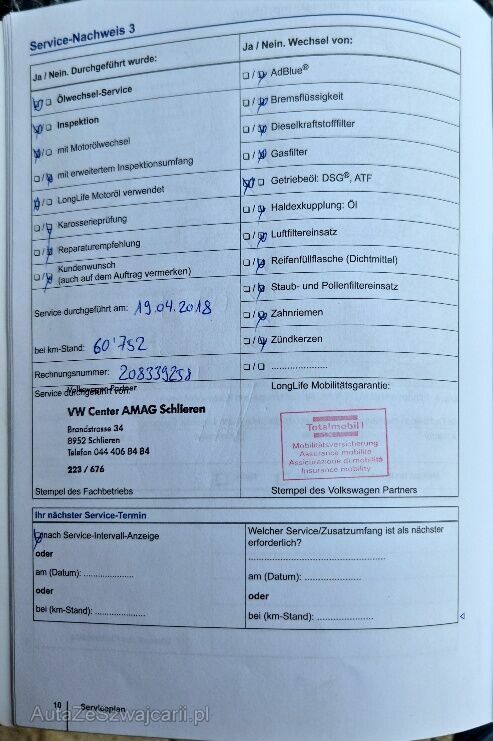 Service-Nachweis 3
Ja / Nein. Durchgeführt wurde:
Ölwechsel-Service
Inspektion
mit Motorölwechsel
mit erweitertem Inspektionsumfang
LongLife Motoröl verwendet
Karosserieprüfung
Reparaturempfehlung
Kundenwunsch
(auch auf dem Auftrag vermerken)
Service durchgeführt am: 19.04.2018
bei km-Stand: 60'752
Rechnungsnummer: 208339258
Service durchgeführt von:
Volkswagen Partner
VW Center AMAG Schlieren
Brandstrasse 34
8952 Schlieren
Telefon 044 406 84 84
223 / 676
Stempel des Fachbetriebs
Ja / Nein. Wechsel von:
AdBlue®
Bremsflüssigkeit
Dieselkraftstofffilter
Gasfilter
Getriebeöl: DSG®, ATF
Haldexkupplung: Öl
Luftfiltereinsatz
Reifenfüllflasche (Dichtmittel)
Staub- und Pollenfiltereinsatz
Zahnriemen
Zündkerzen
....................
LongLife Mobilitätsgarantie:
Totalmobil!
Mobilitätsversicherung
Assurance mobilité
Assicurazione di mobilità
Insurance mobility
Stempel des Volkswagen Partners
Ihr nächster Service-Termin
nach Service-Intervall-Anzeige
oder
am (Datum): ....................
oder
bei (km-Stand): ....................
Welcher Service/Zusatzumfang ist als nächster
erforderlich?
....................
am (Datum): ....................
oder
bei (km-Stand): ....................
10 Serviceplan
AutaZeSzwajcarii.pl